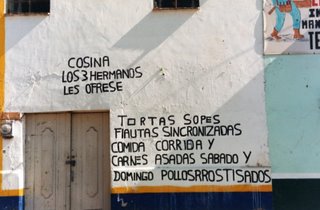 COSINA
LOS 3 HERMANOS
LES OFRESE
TORTAS SOPES
FlAUTAS SINCRONIZADAS
COMIDA CORRIDA Y
CARNES ASADAS SABADO Y
DOMINGO POLLOSRROSTISADOS